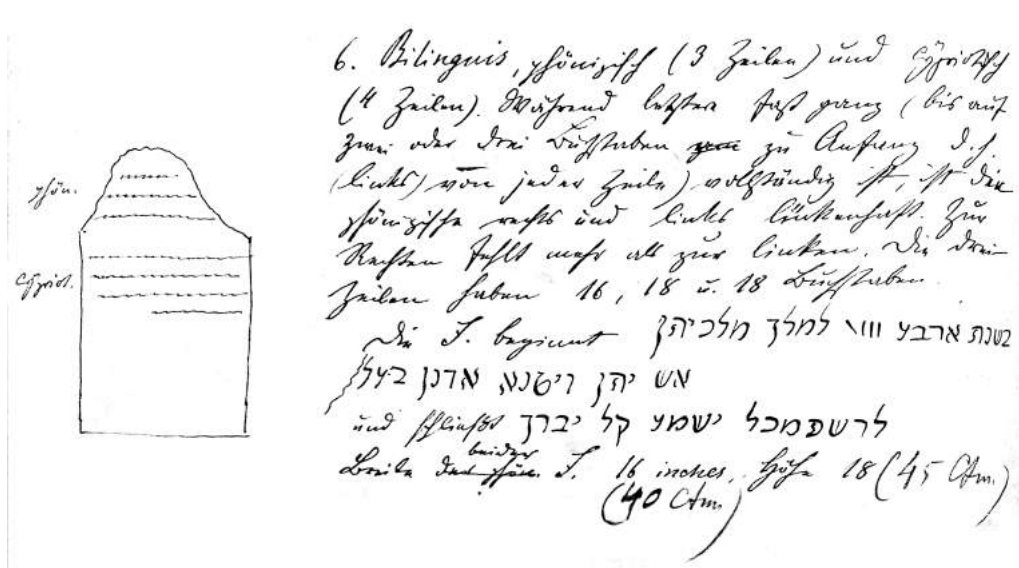 phön.
cypriot.
6. Bilinguis, phönizisch (3 Zeilen) und cypriotisch
(4 Zeilen). Während letztere fast ganz (bis auf
zwei oder drei Buchstaben zu Anfang d. h.
(links) von jeder Zeile) vollständig ist, ist die
phönizische rechts und links lückenhaft. Zur
Rechten fehlt mehr als zur linken. Die drei
Zeilen haben 16, 18 u. 18 Buchstaben.
Die I. beginnt בשנת ארבע למלך מלכיתן
אש יתן ויטנא אדנן בעל
und schließt לרשפמכל ישמע קל יברך
beider
Breite phön. I. 16 inches, Höhe 18 (45 Ctm.)
(40 Ctm.)